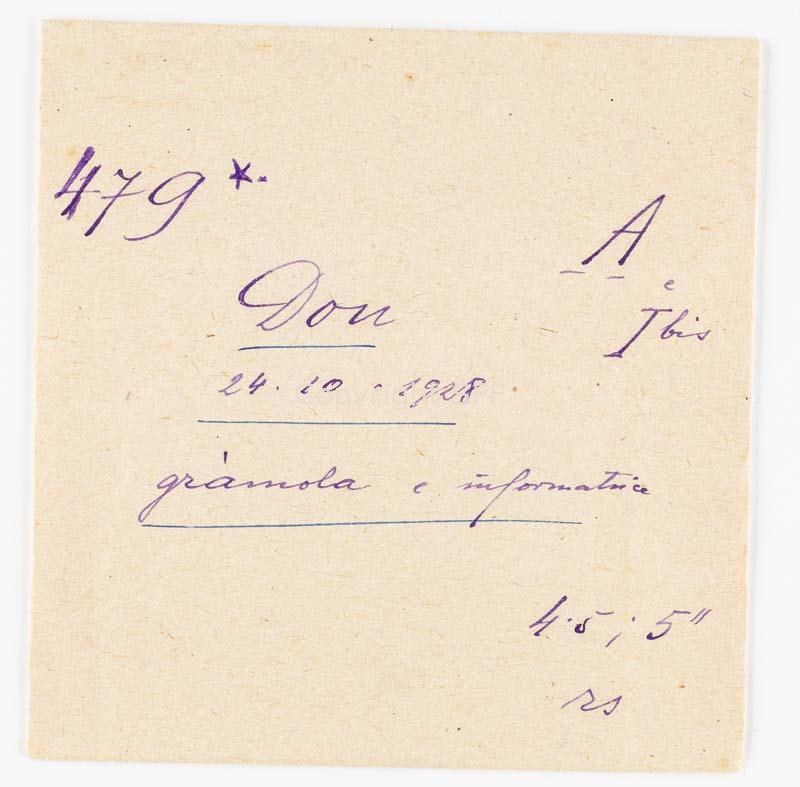 479*.
A
e
Don
I bis
24.10.1928
gràmola e informatrice
4.5; 5"
rs